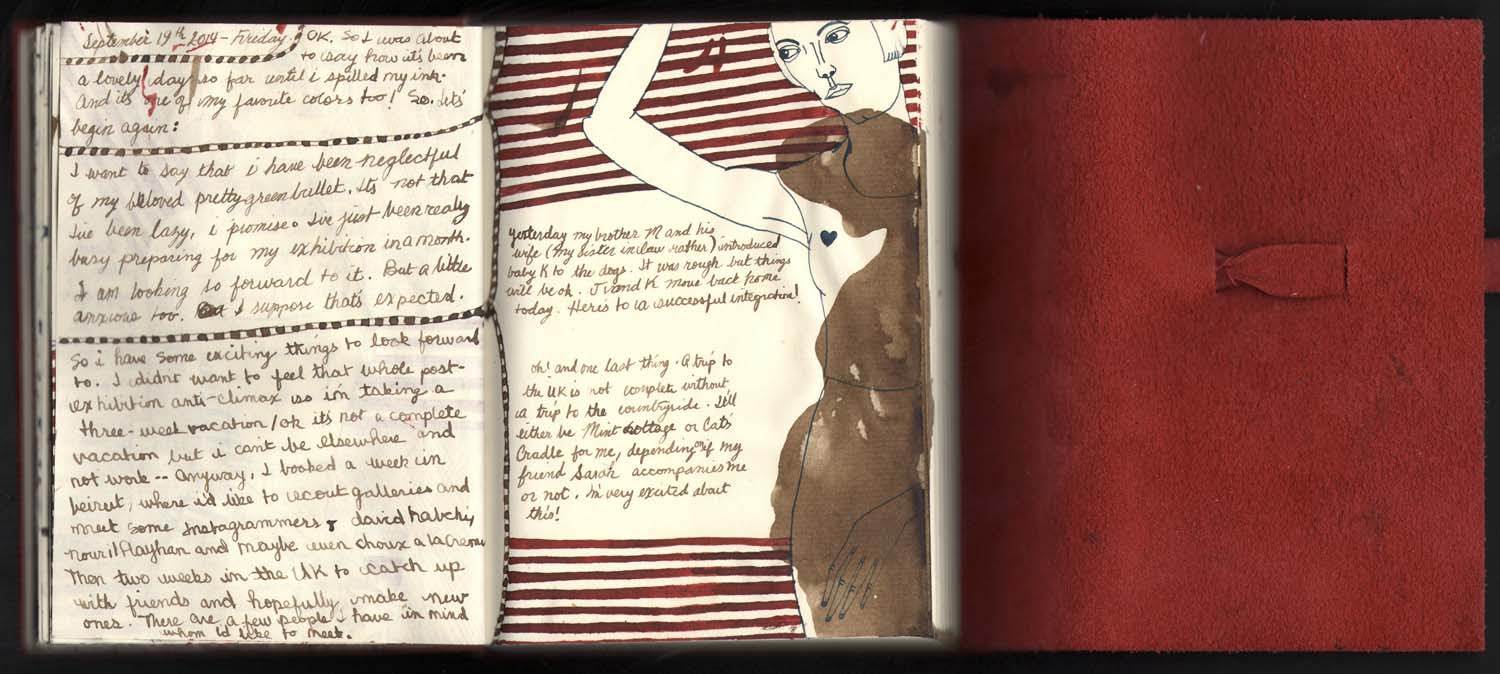 September 19th 2014 - Friday. OK. So I was about
to say how it's been
a lovely day so far until i spilled my ink.
And it's one of my favorite colors too! So. let's
begin again:
I want to say that i have been neglectful
of my beloved prettygreenbullet. It's not that
I've been lazy, i promise. I've just been really
busy preparing for my exhibition in a month.
I am looking so forward to it. But a little
anxious too. I suppose that's expected.
So i have some exciting things to look forward
to. I didn't want to feel that whole post-
exhibition anti-climax so i'm taking a
three-week vacation/ok it's not a complete
vacation but i can't be elsewhere and
not work -- Anyway, I booked a week in
beirut, where i'd like to scout galleries and
meet some Instagrammers & david habchi,
nouri Flayhan and maybe even choux a la creme
Then two weeks in the UK to catch up
with friends and hopefully make new
ones. There are a few people I have in mind
whom I'd like to meet.
yesterday my brother M and his
wife (my sister in law rather) introduced
baby K to the dogs. It was rough but things
will be ok. J and K move back home
today. Here's to a successful integration!
oh! and one last thing. A trip to
the UK is not complete without
a trip to the countryside. It'll
either be Mint Cottage or Cat's
Cradle for me, depending on if my
friend Sarah accompanies me
or not. I'm very excited about
this!